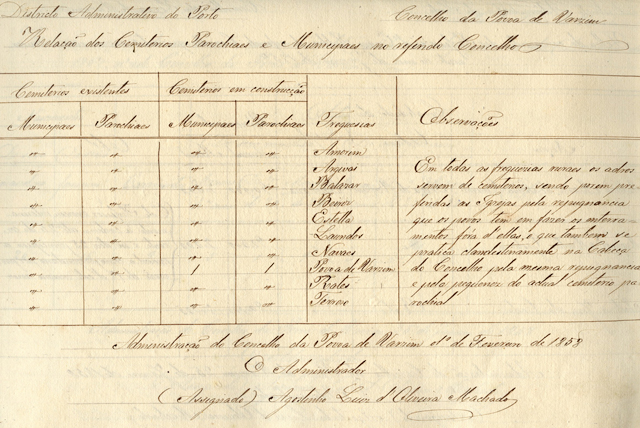 Districto Administrativo do Porto
Concelho da Povoa de Varzim
Relação dos Cemiterios Parochiaes e Municipaes no referido Concelho
Cemiterios existentes Cemiterios em construcção
Municipaes Parochiaes Municipaes Parochiaes Freguesias Observações
" " " " Amorim
" " " " Argivai
" " " " Balazar
" " " " Beiriz
" " " " Estella
" " " " Laundos
" " " " Navaes
" " 1 1 Povoa de Varzim
" " " " Rates
" " " " Terroso
Em todas as freguesias ruraes os adros
servem de cemiterios, sendo porem pre
feridas as Igrejas pela repugnancia
que os povos tem em fazer os enterra
mentos fora d'ellas, o que tambem se
pratica clandestinamente na Cabeça
do Concelho pela mesma repugnancia
e pelo pequeno do actual cemiterio pa
rochial
Administração do Concelho da Povoa de Varzim de Fevereiro de 1859
O Administrador
(Assignado) Agostinho Luiz d'Oliveira Machado